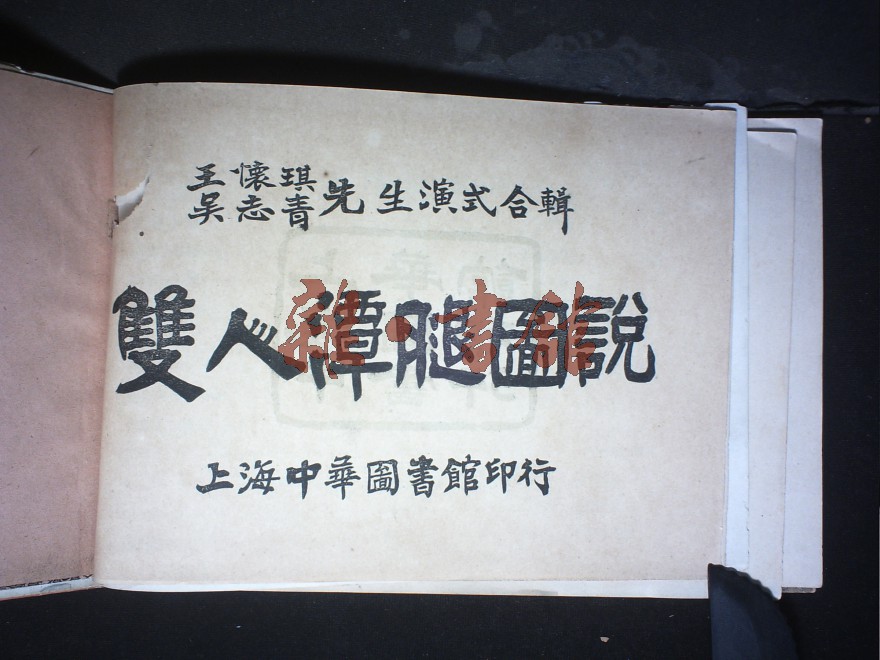 王懷琪
吳志青先生演式合輯
雙人潭腿圖說
雜·書館
上海中華圖書館印行